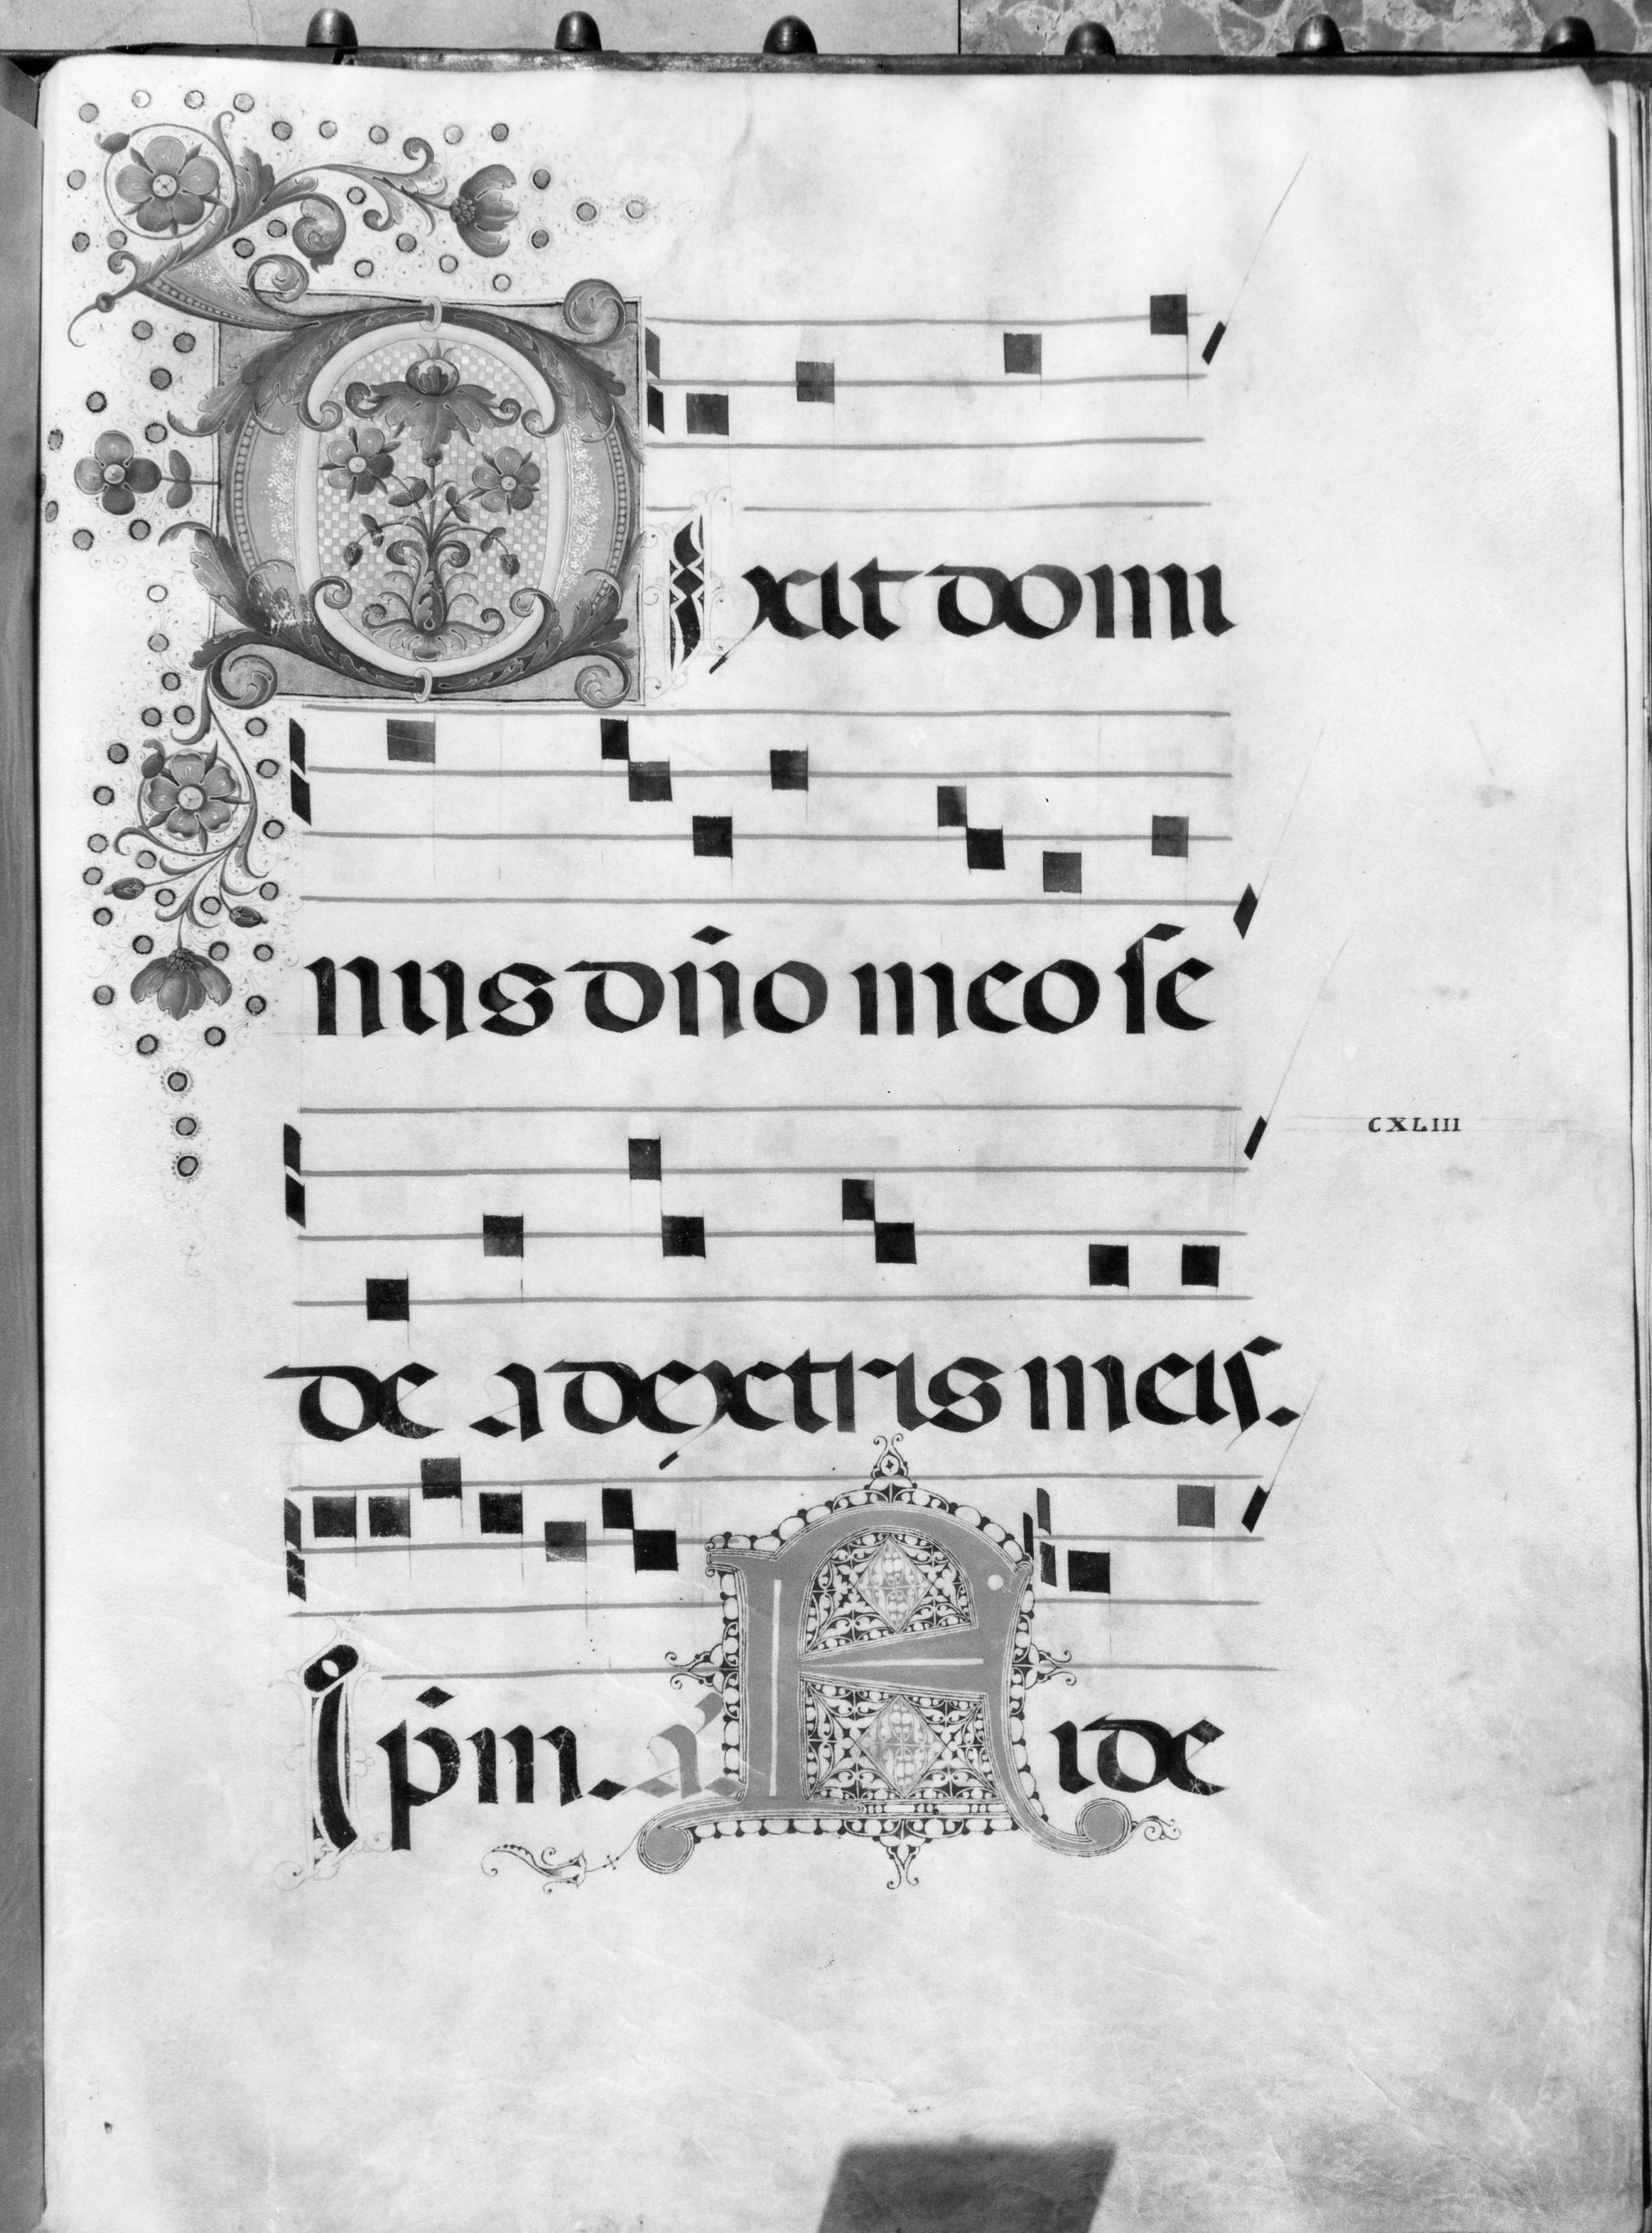 Dixit domi
nus dño meo se
de a dextris meis.
CXLIII
Ip̄m. a Fide